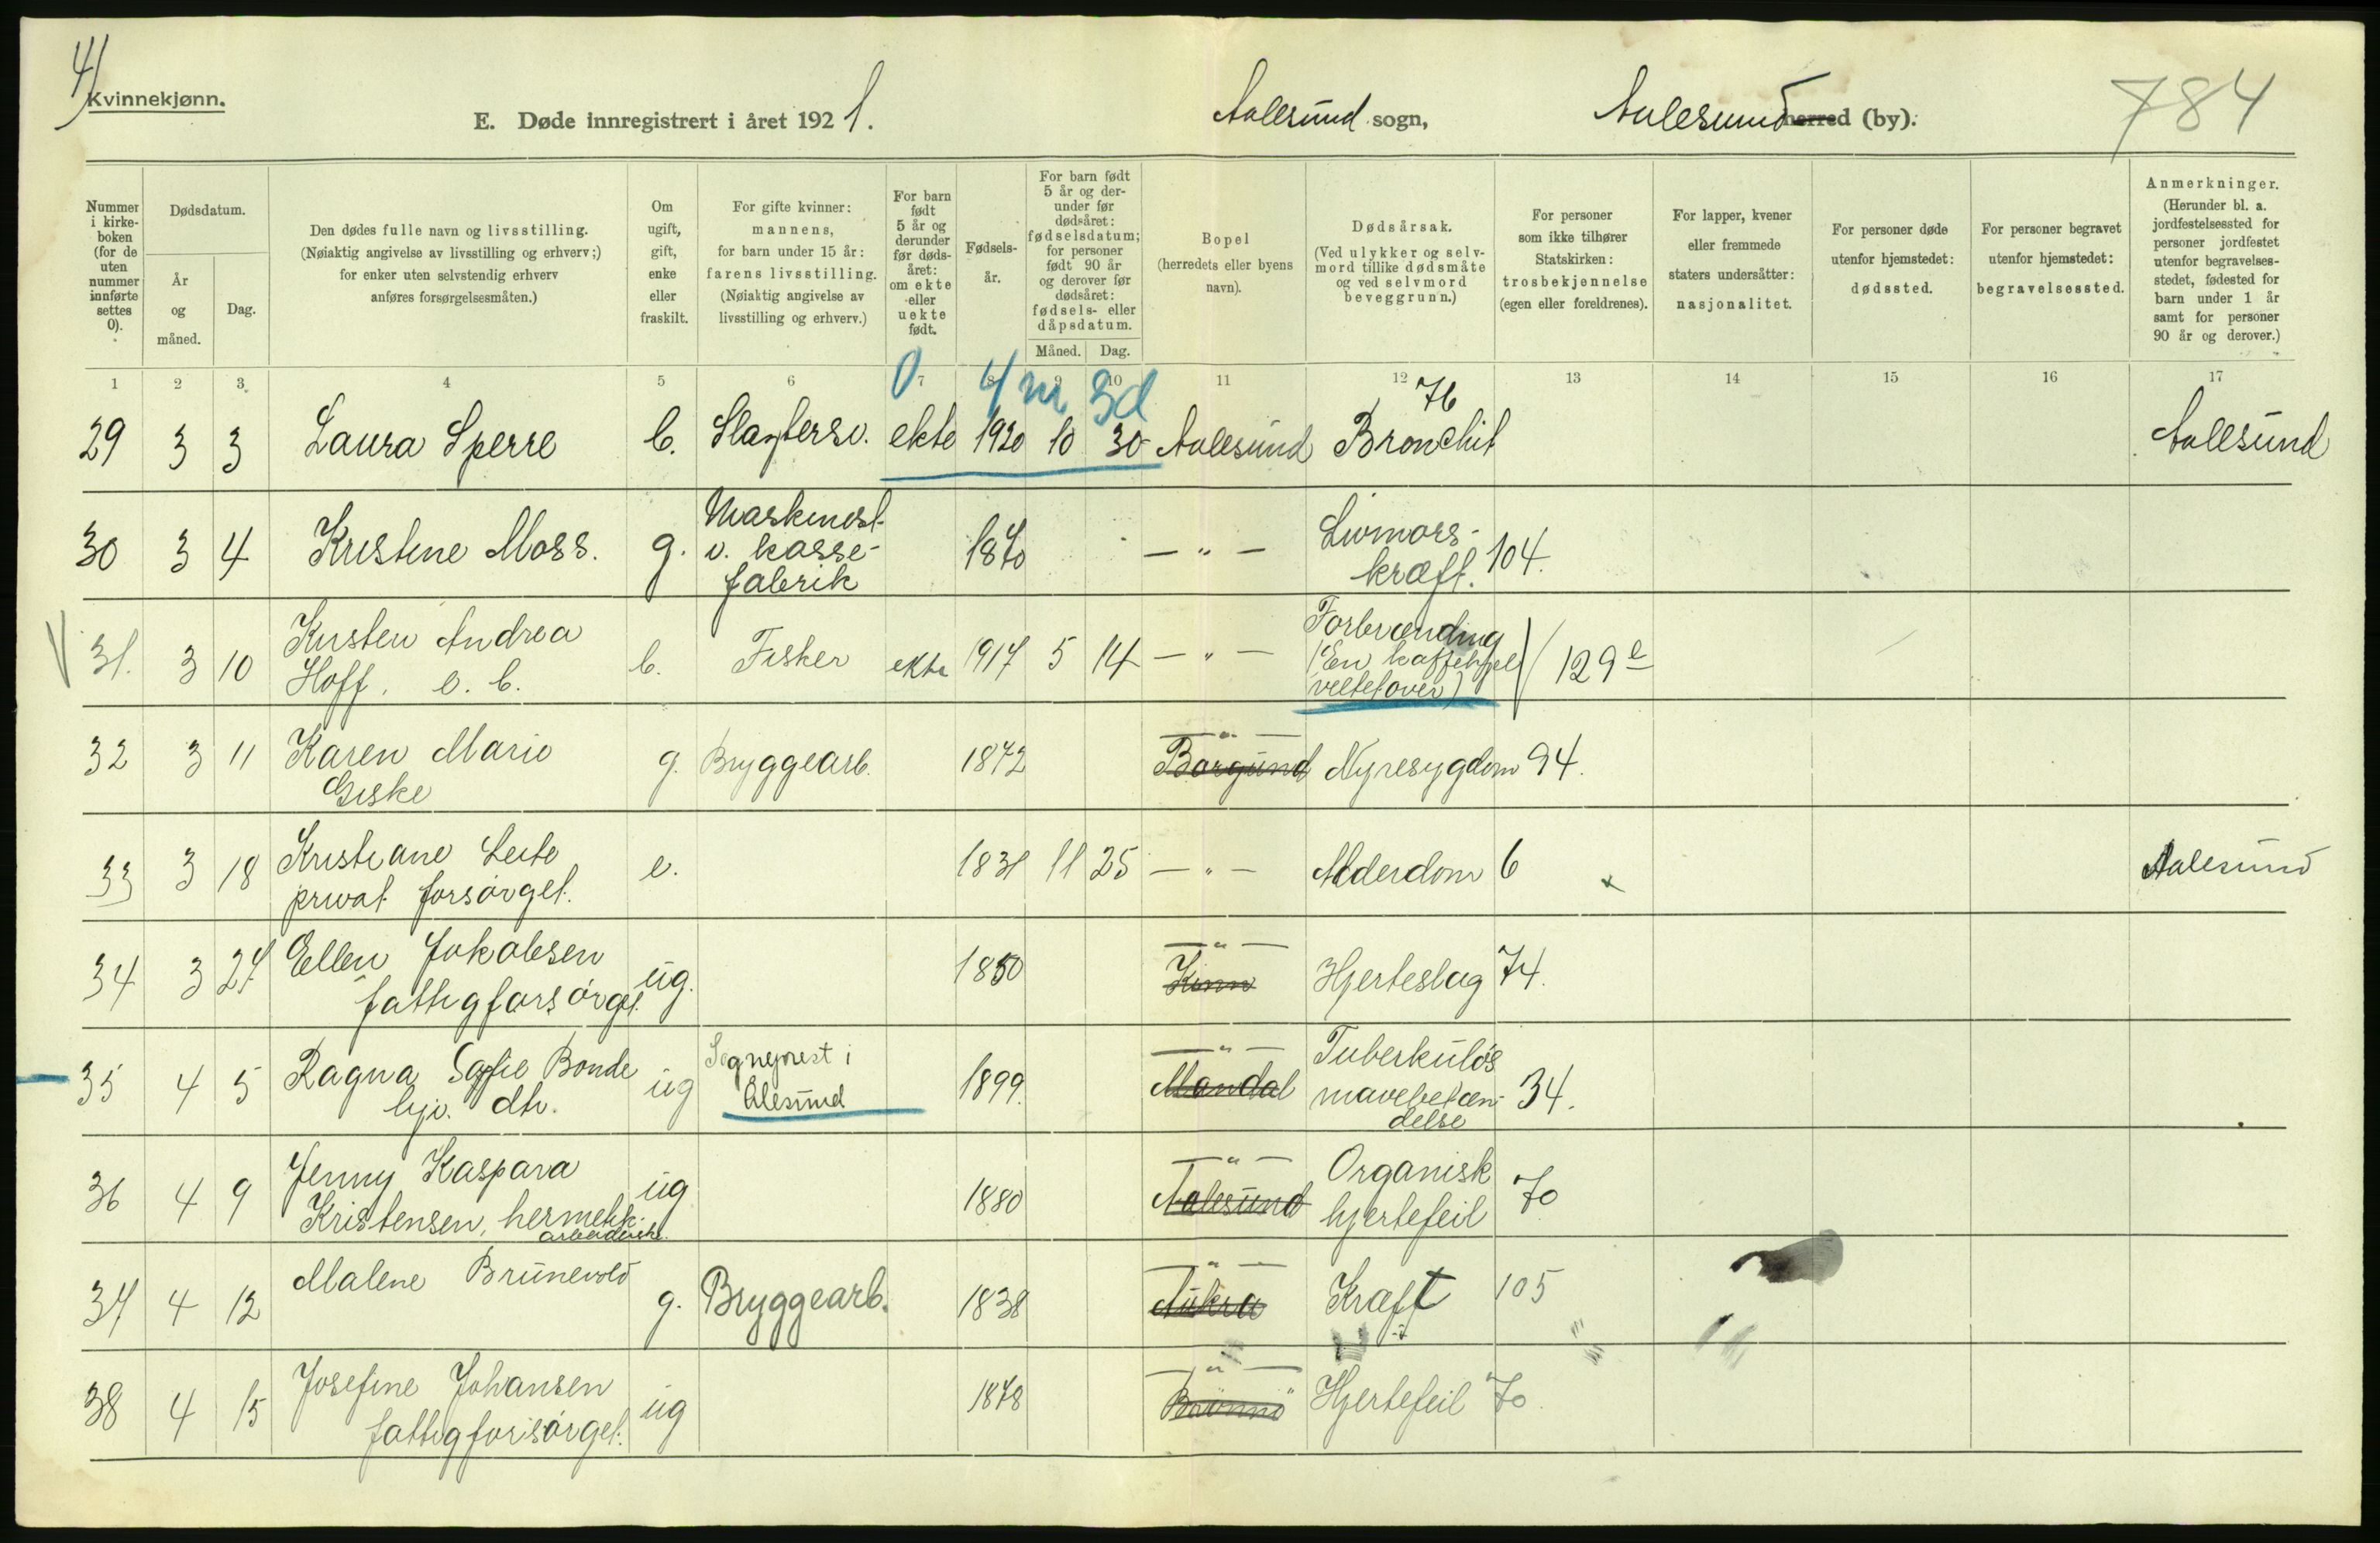 4)
Kvinnekjønn.
E. Døde innregistrert i året 1921.
Aalesund sogn,
Aalesund herred (by).
784
Nummer i kirkeboken (for de uten nummer innførte settes 0).
Dødsdatum.
År og måned.
Dag.
Den dødes fulle navn og livsstilling.
(Nøiaktig angivelse av livsstilling og erhverv;)
for enker uten selvstendig erhverv
anføres forsørgelsesmåten.)
Om ugift, gift, enke eller fraskilt.
For gifte kvinner:
mannens,
for barn under 15 år:
farens livsstilling.
(Nøiaktig angivelse av
livsstilling og erhverv.)
For barn født 5 år og derunder før dødsåret: om ekte eller uekte født.
Fødselsår.
For barn født 5 år og derunder før dødsåret: fødselsdatum; for personer født 90 år og derover før dødsåret: fødsels- eller dåpsdatum.
Måned. Dag.
Bopel
(herredets eller byens
navn).
Dødsårsak.
(Ved ulykker og selvmord tillike dødsmåte og ved selvmord beveggrunn.)
For personer
som ikke tilhører
Statskirken:
trosbekjennelse
(egen eller foreldrenes).
For lapper, kvener
eller fremmede
staters undersåtter:
nasjonalitet.
For personer døde
utenfor hjemstedet:
dødssted.
For personer begravet
utenfor hjemstedet:
begravelsessted.
Anmerkninger.
(Herunder bl. a.
jordfestelsessted for
personer jordfestet
utenfor begravelsesstedet, fødested for
barn under 1 år
samt for personer
90 år og derover.)
1 2 3 4 5 6 7 8 9 10 11 12 13 14 15 16 17
0 4 m 3d
76
29 3 3 Laura Sperre b. ekte 1920 10 30 Aalesund Bronchit Aalesund
30 3 4 Kristine Moss. g. Maskinist
v. kasse-
fabrik 1870 — " — Livmors-
kræft. 104.
31. 3 10 Kirsten Andrea
Hoff, e. b. b. Fisker ekte 1917 5 14 — " — Forbrænding
(En kaffekjel
veltet over) 129 e
32 3 11 Karen Marie
Giske g. Bryggearb. 1872 — " —
Borgund Nyresygdom 94.
33 3 18 Kristiane Leite
privat forsørget. e. 1831 11 25 — " — Alderdom 6 x Aalesund
34 3 27 Ellen Jakobsen
fattigforsørget. ug. 1850 — " —
Kinn Hjerteslag 74.
35 4 5 Ragna Sofie Bonde
hjv. dtr. ug Sogneprest i
Ålesund 1899. — " —
Mandal Tuberkuløs
mavebetæn-
delse 34.
36 4 9 Jenny Kaspara
Kristensen, hermetik-
arbeiderske. ug 1880 — " —
Aalesund Organisk
hjertefeil 70
37 4 12 Malene Brunevold g. Bryggearb. 1838 — " —
Aukra Kræft 105
38 4 15 Josefine Johansen
fattigforsørget. ug 1878 — " —
Hjertefeil 70.